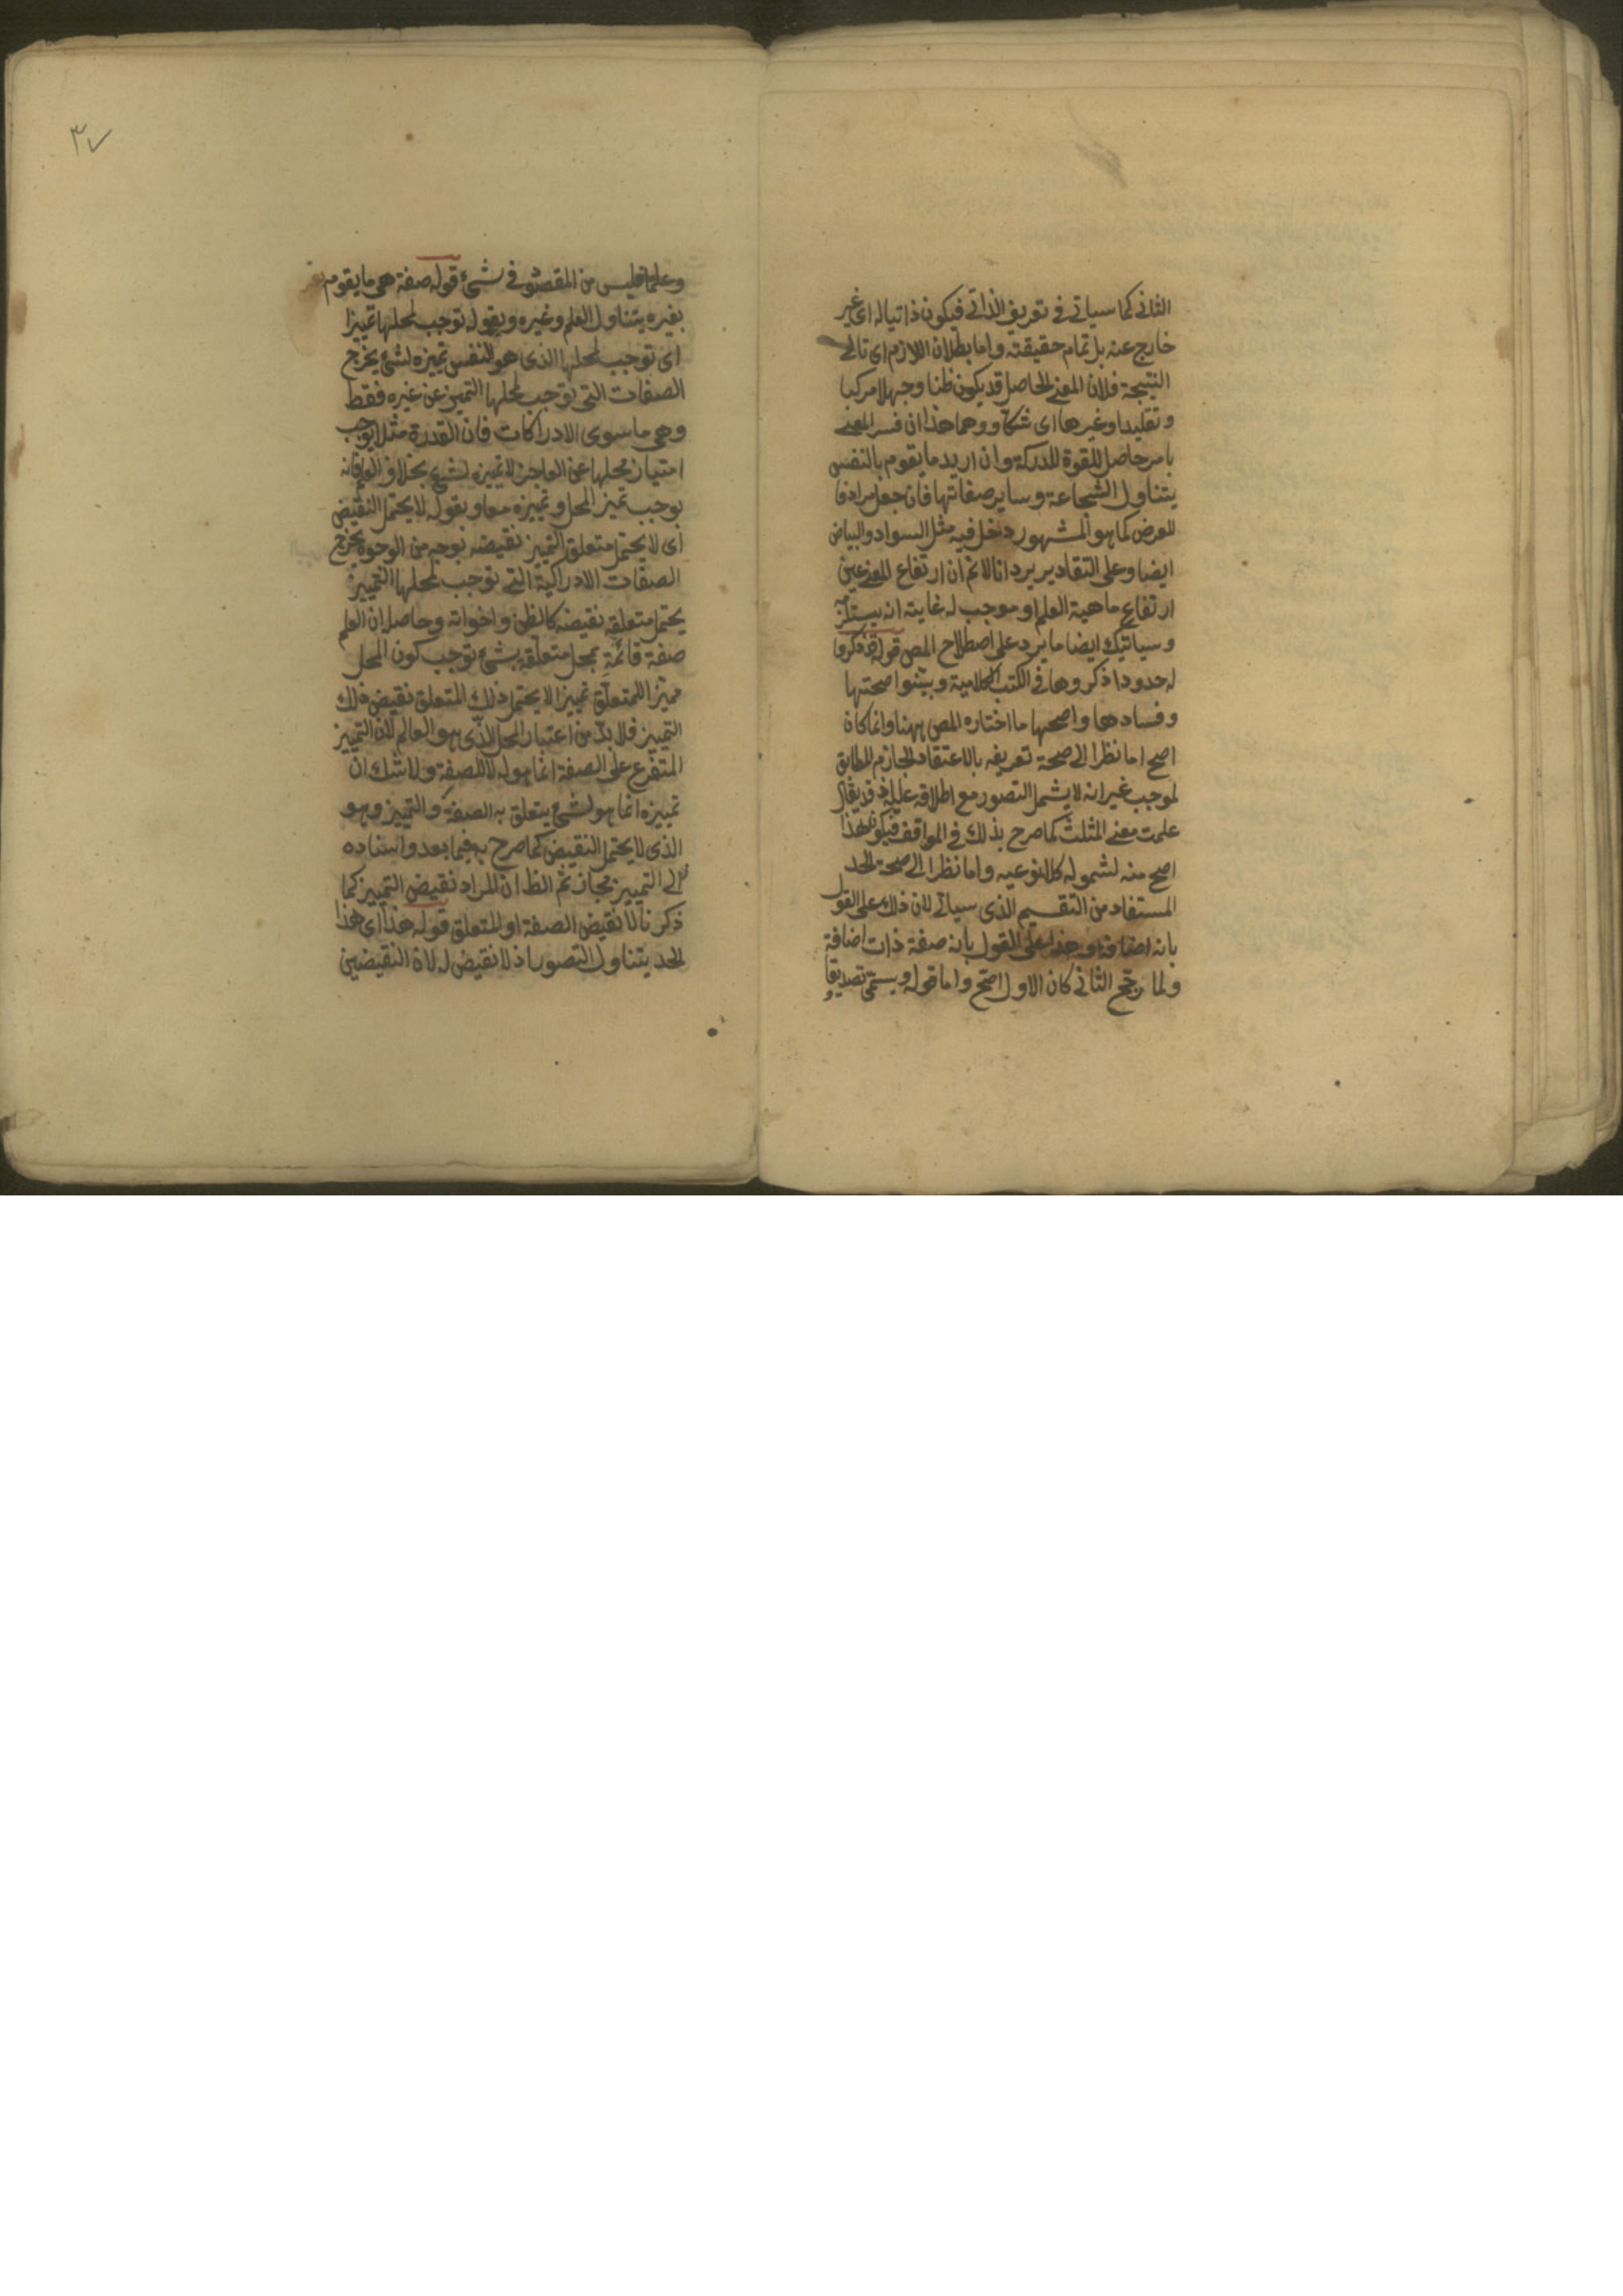 الثانى كما سياتى فى تعريف الذاتى فيكون ذاتيا له اى غير
خارج عنه بل تمام حقيقته واما بطلان اللازم اى تالى
النتيجة فلان المعنى الحاصل قد يكون ظنا وجهلا مركبا
وتقليدا وغيرها اى شكا ووهما هذا ان فسر المعنى
بامر حاصل للقوة المدركة وان اريد ما يقوم بالنفس
يتناول الشجاعة وساير صفاتها فان جعل مرادفا
للعرض كما هو المشهور دخل فيه مثل السواد والبياض
ايضا وعلى التقادير يرد انا لانم ان ارتفاع المعنى عين
ارتفاع ماهية العلم او موجب له غايته انه يستلزمه
وسياتيك ايضا ما يرد على اصطلاح المص قوله قد ذكروا
له حدودا ذكروها فى الكتب الكلامية وبينوا صحتها
وفسادها واصحها ما اختاره المص ههنا وانما كان
اصح اما نظرا الى صحة تعريفه بالاعتقاد الجازم المطابق
لموجب غير انه لا يشمل التصور مع اطلاقه عليه اذ قد يقال
علمت معنى المثلث كما صرح بذلك فى المواقف فيكون هذا
اصح منه لشموله كلا نوعيه واما نظرا الى صحة الحد
المستفاد من التقسيم الذى سياتى لان ذلك على القول
بانه اضافة وهذا على القول بانه صفة ذات اضافة
ولما رجح الثانى كان الاول اصح واما قوله ويسمى تصديقا
٣٧
وعلما فليس من المقصود فى شىء قوله صفة هى ما يقوم
بغيره يتناول العلم وغيره وبقوله توجب لمحلها تمييزا
اى توجب لمحلها الذى هو النفس تمييزه لشىء يخرج
الصفات التى توجب لمحلها التميز عن غيره فقط
وهى ما سوى الادراكات فان القدرة مثلا يوجب
امتياز محلها عن العاجز لا تمييزه لشىء بخلاف العلم فانه
يوجب تميز المحل وتمييزه معا وبقوله لا يحتمل النقيض
اى لا يحتمل متعلق التمييز نقيضه بوجه من الوجوه يخرج
الصفات الادراكية التى توجب لمحلها التمييز
يحتمل متعلقه نقيضه كالظن واخواته وحاصله ان العلم
صفة قائمة بمحل متعلقة بشىء توجب كون المحل
مميزا للمتعلق تمييزا لا يحتمل ذلك المتعلق نقيض ذلك
التمييز فلا بد من اعتبار المحل الذى هو العالم لان التمييز
المتفرع على الصفة انما هو له لا للصفة ولا شك ان
تمييزه انما هو لشىء يتعلق به الصفة والتمييز وهو
الذى لا يحتمل النقيض كما صرح به فيما بعد واسناده
الى التمييز مجاز ثم الظ ان المراد نقيض التمييز كما
ذكرنا لا نقيض الصفة او المتعلق قوله هذا اى هذا
الحد يتناول التصور اذ لا نقيض له لان النقيضين